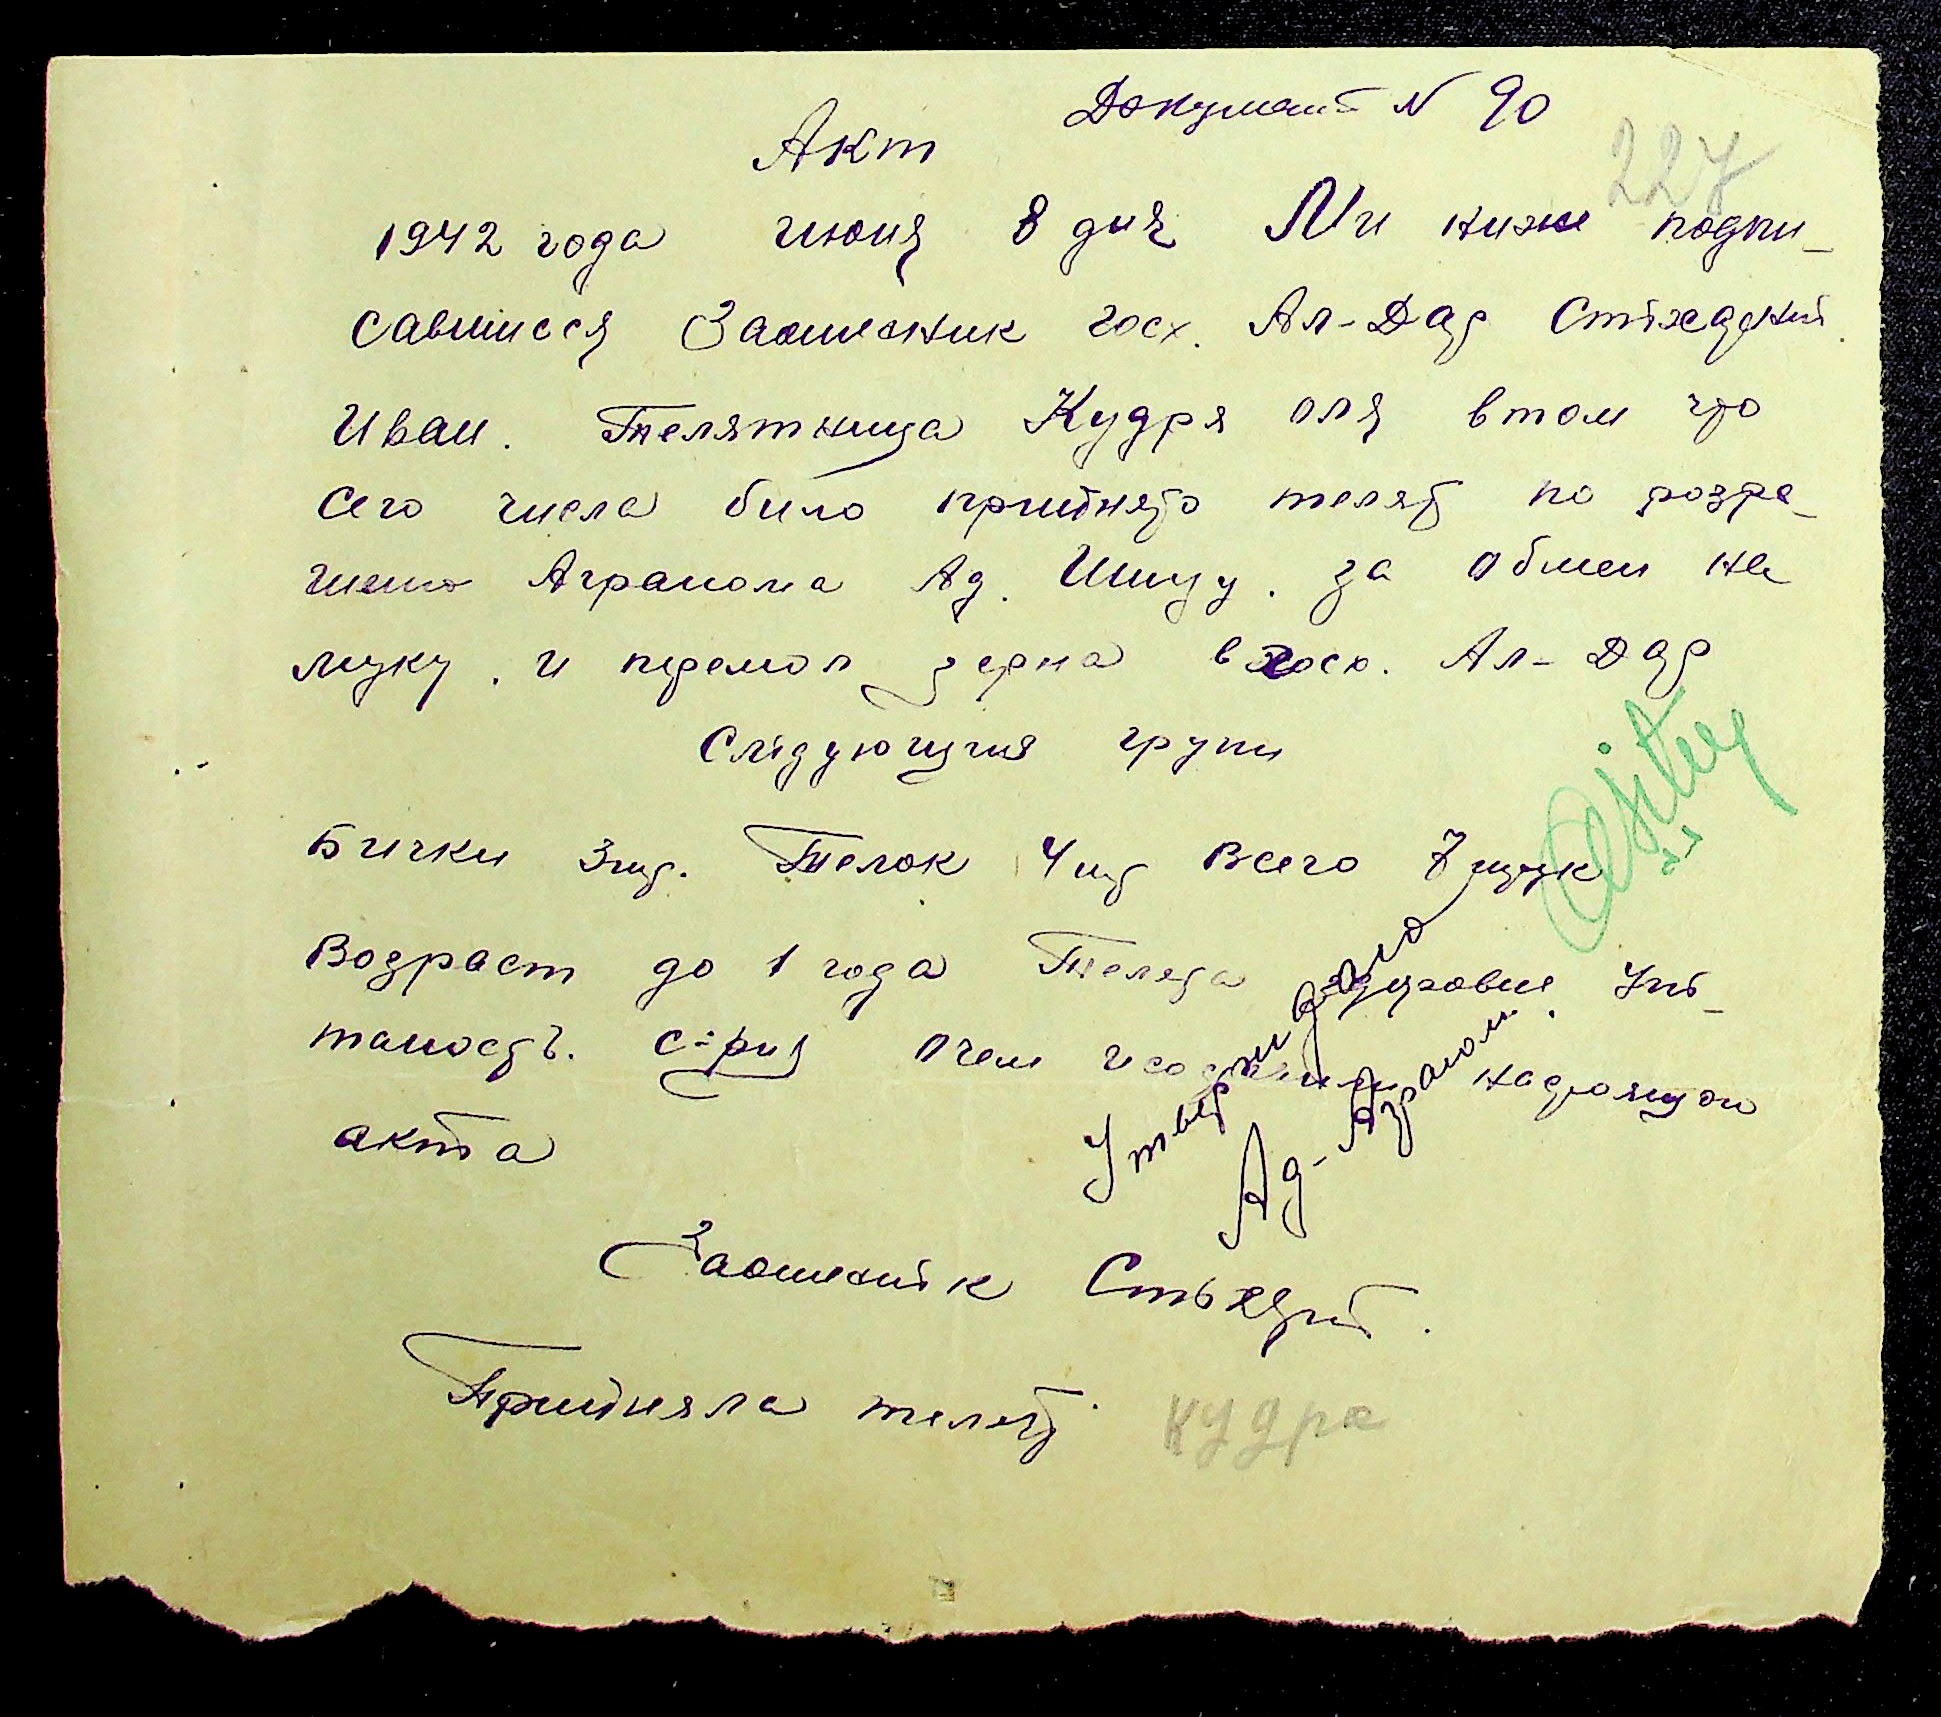 Документ N 90
Акт
227
1942 года июня 8 дня Ми ниже подпи-
савшиеся Заошчник госх. Ал-Дар
Иван. Телятница Кудря Оля втом что
сего числа било прийнято телят по розре-
шению Агранома Ад. Шицу. за обмен на
муку. и перемол зерна в госх. Ал-Дар
Слідующия групи
Бички 3 шт. Телок 4 шт Всего 7 штук
Возраст до 1 года Телята здоровие. Упі-
таность. с-рид Очем и составили настоящого
акта
Утверждаю
Ад-Агроном
Приймяла телят. Кудра